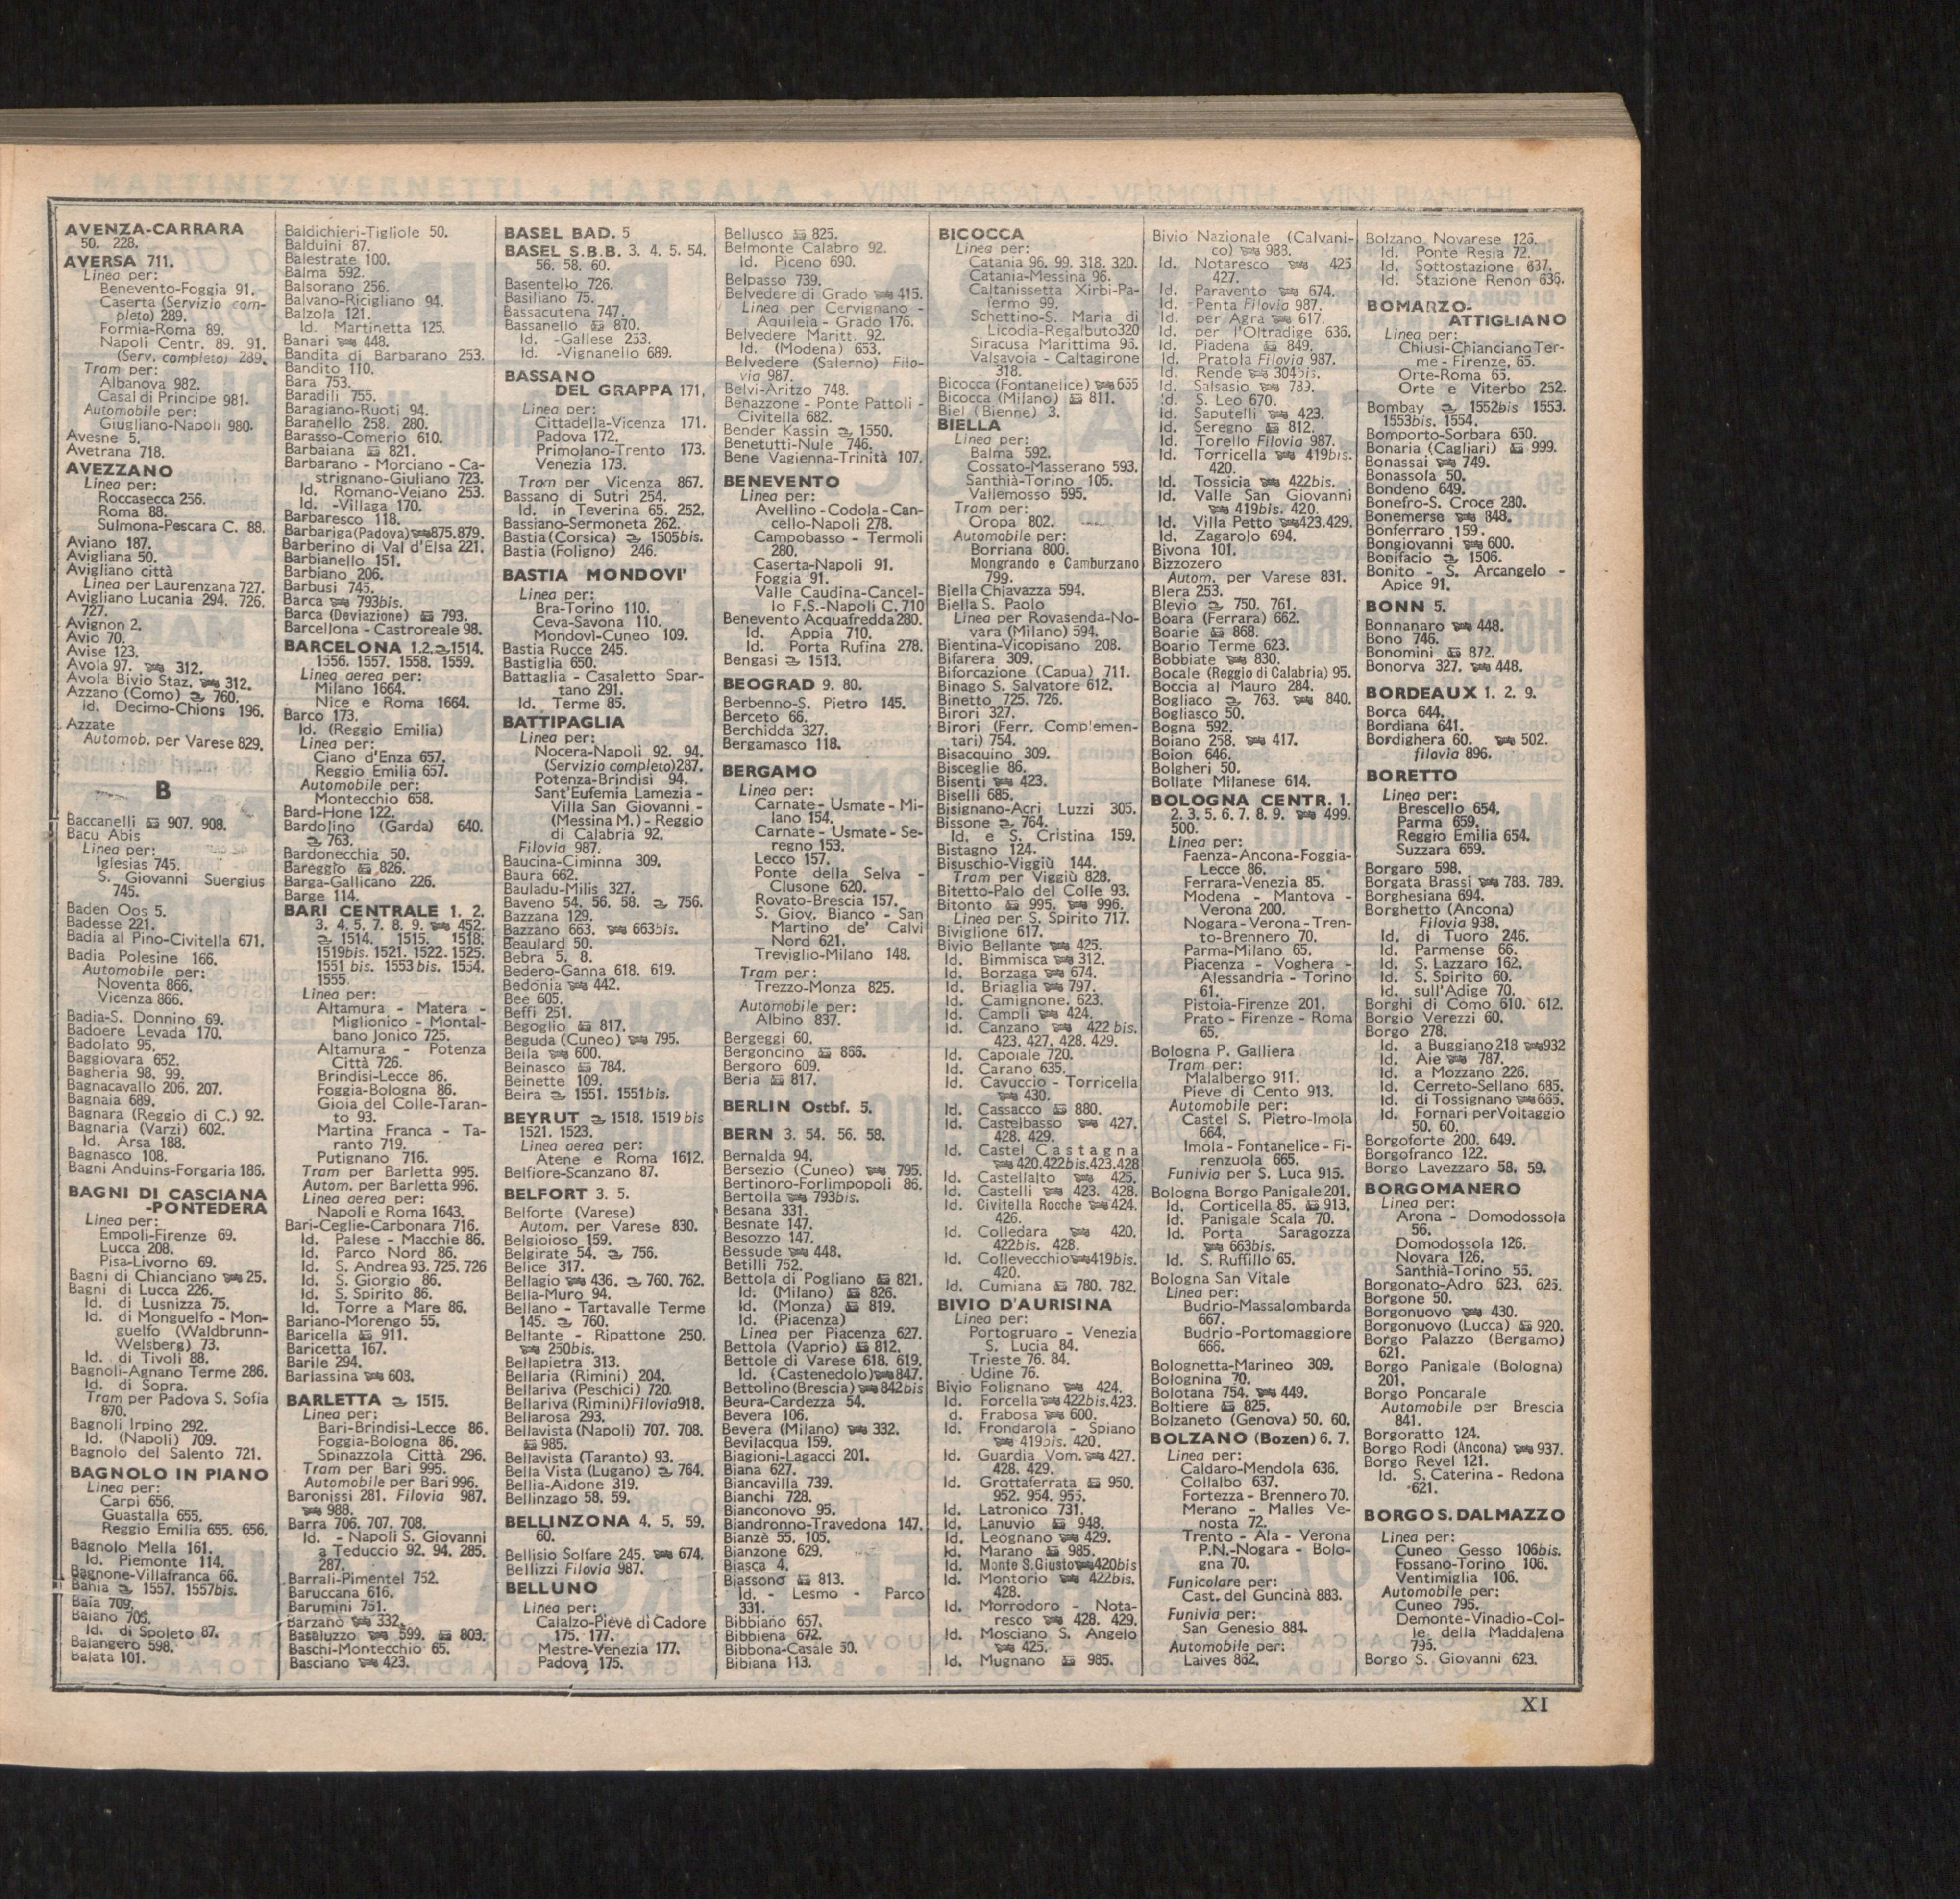 AVENZA-CARRARA
50. 228.
AVERSA 711.
Linea per:
Benevento-Foggia 91.
Caserta (Servizio com-
pleto) 289.
Formia-Roma 89.
Napoli Centr. 89. 91.
(Serv. completo) 289.
Tram per:
Albanova 982.
Casal di Principe 981.
Automobile per:
Giugliano-Napoli 980.
Avesne 5.
Avetrana 718.
AVEZZANO
Linea per:
Roccasecca 256.
Roma 88.
Sulmona-Pescara C. 88.
Aviano 187.
Avigliana 50.
Avigliano città
Linea per Laurenzana 727.
Avigliano Lucania 294. 726.
727.
Avignon 2.
Avio 70.
Avise 123.
Avola 97. 312.
Avola Bivio Staz. 312.
Azzano (Como) 760.
Id. Decimo-Chions 196.
Azzate
Automob. per Varese 829.
B
Baccanelli 907. 908.
Bacu Abis
Linea per:
Iglesias 745.
S. Giovanni Suergius
745.
Baden Oos 5.
Badesse 221.
Badia al Pino-Civitella 671.
Badia Polesine 166.
Automobile per:
Noventa 866.
Vicenza 866.
Badia-S. Donnino 69.
Badoere Levada 170.
Badolato 95.
Baggiovara 652.
Bagheria 98. 99.
Bagnacavallo 206. 207.
Bagnaia 689.
Bagnara (Reggio di C.) 92.
Bagnaria (Varzi) 602.
Id. Arsa 188.
Bagnasco 108.
Bagni Anduins-Forgaria 186.
BAGNI DI CASCIANA
-PONTEDERA
Linea per:
Empoli-Firenze 69.
Lucca 208.
Pisa-Livorno 69.
Bagni di Chianciano 25.
Bagni di Lucca 226.
Id. di Lusnizza 75.
Id. di Monguelfo - Mon-
guelfo (Waldbrunn-
Welsberg) 73.
Id. di Tivoli 88.
Bagnoli-Agnano Terme 286.
Id. di Sopra.
Tram per Padova S. Sofia
870.
Bagnoli Irpino 292.
Id. (Napoli) 709.
Bagnolo del Salento 721.
BAGNOLO IN PIANO
Linea per:
Carpi 656.
Guastalla 655.
Reggio Emilia 655. 656.
Bagnolo Mella 161.
Id. Piemonte 114.
Bagnone-Villafranca 66.
Bahia 1557. 1557bis.
Baia 709.
Baiano 705.
Id. di Spoleto 87.
Balangero 598.
Balata 101.
Baldichieri-Tigliole 50.
Balduini 87.
Balestrate 100.
Balma 592.
Balsorano 256.
Balvano-Ricigliano 94.
Balzola 121.
Id. Martinetta 125.
Banari 448.
Bandita di Barbarano 253.
Bandito 110.
Bara 753.
Baradili 755.
Baragiano-Ruoti 94.
Baranello 258. 280.
Barasso-Comerio 610.
Barbaiana 821.
Barbarano - Morciano - Ca-
strignano-Giuliano 723.
Id. Romano-Veiano 253.
Id. -Villaga 170.
Barbaresco 118.
Barbariga (Padova) 875.879.
Barberino di Val d'Elsa 221.
Barbianello 151.
Barbiano 206.
Barbusi 745.
Barca 793bis.
Barca (Deviazione) 793.
Barcellona - Castroreale 98.
BARCELONA 1.2. 1514.
1556. 1557. 1558. 1559.
Linea aerea per:
Milano 1664.
Nice e Roma 1664.
Barco 173.
Id. (Reggio Emilia)
Linea per:
Ciano d'Enza 657.
Reggio Emilia 657.
Automobile per:
Montecchio 658.
Bard-Hone 122.
Bardolino (Garda) 640.
763.
Bardonecchia 50.
Bareggio 826.
Barga-Gallicano 226.
Barge 114.
BARI CENTRALE 1. 2.
3. 4. 5. 7. 8. 9. 452.
1514. 1515. 1518.
1519bis. 1521. 1522. 1525.
1551 bis. 1553 bis. 1554.
1555.
Linea per:
Altamura - Matera -
Miglionico - Montal-
bano Jonico 725.
Altamura - Potenza
Città 726.
Brindisi-Lecce 86.
Foggia-Bologna 86.
Gioia del Colle-Taran-
to 93.
Martina Franca - Ta-
ranto 719.
Putignano 716.
Tram per Barletta 995.
Autom. per Barletta 996.
Linea aerea per:
Napoli e Roma 1643.
Bari-Ceglie-Carbonara 716.
Id. Palese - Macchie 86.
Id. Parco Nord 86.
Id. S. Andrea 93. 725. 726
Id. S. Giorgio 86.
Id. S. Spirito 86.
Id. Torre a Mare 86.
Bariano-Morengo 55.
Baricella 911.
Baricetta 167.
Barile 294.
Barlassina 603.
BARLETTA 1515.
Linea per:
Bari-Brindisi-Lecce 86.
Foggia-Bologna 86.
Spinazzola Città 296.
Tram per Bari 995.
Automobile per Bari 996.
Baronissi 281. Filovia 987.
988.
Barra 706. 707. 708.
Id. - Napoli S. Giovanni
a Teduccio 92. 94. 285.
287.
Barrali-Pimentel 752.
Baruccana 616.
Barumini 751.
Barzanò 332.
Basaluzzo 599. 803.
Baschi-Montecchio 65.
Basciano 423.
BASEL BAD. 5
BASEL S.B.B. 3. 4. 5. 54.
56. 58. 60.
Basentello 726.
Basiliano 75.
Bassacutena 747.
Bassanello 870.
Id. -Gallese 253.
Id. -Vignanello 689.
BASSANO
DEL GRAPPA 171.
Linea per:
Cittadella-Vicenza 171.
Padova 172.
Primolano-Trento 173.
Venezia 173.
Tram per Vicenza 867.
Bassano di Sutri 254.
Id. in Teverina 65. 252.
Bassiano-Sermoneta 262.
Bastia (Corsica) 1505bis.
Bastia (Foligno) 246.
BASTIA MONDOVI'
Linea per:
Bra-Torino 110.
Ceva-Savona 110.
Mondovì-Cuneo 109.
Bastia Rucce 245.
Bastiglia 650.
Battaglia - Casaletto Spar-
tano 291.
Id. Terme 85.
BATTIPAGLIA
Linea per:
Nocera-Napoli 92. 94.
(Servizio completo) 287.
Potenza-Brindisi 94.
Sant'Eufemia Lamezia -
Villa San Giovanni -
(Messina M.) - Reggio
di Calabria 92.
Filovia 987.
Baucina-Ciminna 309.
Baura 662.
Bauladu-Milis 327.
Baveno 54. 56. 58. 756.
Bazzana 129.
Bazzano 663. 663bis.
Beaulard 50.
Bebra 5. 8.
Bedero-Ganna 618. 619.
Bedonia 442.
Bee 605.
Beffi 251.
Begoglio 817.
Beguda (Cuneo) 795.
Beila 600.
Beinasco 784.
Beinette 109.
Beira 1551. 1551bis.
BEYRUT 1518. 1519 bis
1521. 1523.
Linea aerea per:
Atene e Roma 1612.
Belfiore-Scanzano 87.
BELFORT 3. 5.
Belforte (Varese)
Autom. per Varese 830.
Belgioioso 159.
Belgirate 54. 756.
Belice 317.
Bellagio 436. 760. 762.
Bella-Muro 94.
Bellano - Tartavalle Terme
145. 760.
Bellante - Ripattone 250.
250bis.
Bellapietra 313.
Bellaria (Rimini) 204.
Bellariva (Peschici) 720.
Bellariva (Rimini) Filovia 918.
Bellarosa 293.
Bellavista (Napoli) 707. 708.
985.
Bellavista (Taranto) 93.
Bella Vista (Lugano) 764.
Bellia-Aidone 319.
Bellinzago 58. 59.
BELLINZONA 4. 5. 59.
60.
Bellisio Solfare 245. 674.
Bellizzi Filovia 987.
BELLUNO
Linea per:
Calalzo-Pieve di Cadore
175. 177.
Mestre-Venezia 177.
Padova 175.
Bellusco 825.
Belmonte Calabro 92.
Id. Piceno 690.
Belpasso 739.
Belvedere di Grado 415.
Linea per Cervignano -
Aquileia - Grado 176.
Belvedere Maritt. 92.
Id. (Modena) 653.
Belvedere (Salerno) Filo-
via 987.
Belvì-Aritzo 748.
Benazzone - Ponte Pattoli -
Civitella 682.
Bender Kassin 1550.
Benetutti-Nule 746.
Bene Vagienna-Trinità 107.
BENEVENTO
Linea per:
Avellino - Codola - Can-
cello-Napoli 278.
Campobasso - Termoli
280.
Caserta-Napoli 91.
Foggia 91.
Valle Caudina-Cancel-
lo F.S.-Napoli C. 710
Benevento Acquafredda 280.
Id. Appia 710.
Id. Porta Rufina 278.
Bengasi 1513.
BEOGRAD 9. 80.
Berbenno-S. Pietro 145.
Berceto 66.
Berchidda 327.
Bergamasco 118.
BERGAMO
Linea per:
Carnate - Usmate - Mi-
lano 154.
Carnate - Usmate - Se-
regno 153.
Lecco 157.
Ponte della Selva -
Clusone 620.
Rovato-Brescia 157.
S. Giov. Bianco - San
Martino de' Calvi
Nord 621.
Treviglio-Milano 148.
Tram per:
Trezzo-Monza 825.
Automobile per:
Albino 837.
Bergeggi 60.
Bergoncino 866.
Bergoro 609.
Beria 817.
BERLIN Ostbf. 5.
BERN 3. 54. 56. 58.
Bernalda 94.
Bersezio (Cuneo) 795.
Bertinoro-Forlimpopoli 86.
Bertolla 793bis.
Besana 331.
Besnate 147.
Besozzo 147.
Bessude 448.
Betilli 752.
Bettola di Pogliano 821.
Id. (Milano) 826.
Id. (Monza) 819.
Id. (Piacenza)
Linea per Piacenza 627.
Bettola (Vaprio) 812.
Bettole di Varese 618. 619.
Id. (Castenedolo) 847.
Bettolino (Brescia) 842bis
Beura-Cardezza 54.
Bevera 106.
Bevera (Milano) 332.
Bevilacqua 159.
Biagioni-Lagacci 201.
Biana 627.
Biancavilla 739.
Bianchi 728.
Bianconovo 95.
Biandronno-Travedona 147.
Bianzè 55. 105.
Bianzone 629.
Biasca 4.
Biassono 813.
Id. - Lesmo - Parco
331.
Bibbiano 657.
Bibbiena 672.
Bibbona-Casale 50.
Bibiana 113.
BICOCCA
Linea per:
Catania 96. 99. 318. 320.
Catania-Messina 96.
Caltanissetta Xirbi-Pa-
lermo 99.
Schettino-S. Maria di
Licodia-Regalbuto 320
Siracusa Marittima 96.
Valsavoia - Caltagirone
318.
Bicocca (Fontanelice) 665
Bicocca (Milano) 811.
Biel (Bienne) 3.
BIELLA
Linea per:
Balma 592.
Cossato-Masserano 593.
Santhià-Torino 105.
Vallemosso 595.
Tram per:
Oropa 802.
Automobile per:
Borriana 800.
Mongrando e Camburzano
799.
Biella Chiavazza 594.
Biella S. Paolo
Linea per Rovasenda-No-
vara (Milano) 594.
Bientina-Vicopisano 208.
Bifarera 309.
Biforcazione (Capua) 711.
Binago S. Salvatore 612.
Binetto 725. 726.
Birori 327.
Birori (Ferr. Complemen-
tari) 754.
Bisacquino 309.
Bisceglie 86.
Bisenti 423.
Biselli 685.
Bisignano-Acri Luzzi 305.
Bissone 764.
Id. e S. Cristina 159.
Bistagno 124.
Bisuschio-Viggiù 144.
Tram per Viggiù 828.
Bitetto-Palo del Colle 93.
Bitonto 995. 996.
Linea per S. Spirito 717.
Biviglione 617.
Bivio Bellante 425.
Id. Bimmisca 312.
Id. Borzaga 674.
Id. Briaglia 797.
Id. Camignone. 623.
Id. Campli 424.
Id. Canzano 422 bis.
423. 427. 428. 429.
Id. Capoiale 720.
Id. Carano 635.
Id. Cavuccio - Torricella
430.
Id. Cassacco 880.
Id. Castelbasso 427.
428. 429.
Id. Castel Castagna
420.422bis.423.428
Id. Castellalto 425.
Id. Castelli 423. 428.
Id. Civitella Rocche 424.
426.
Id. Colledara 420.
422bis. 428.
Id. Collevecchio 419bis.
420.
Id. Cumiana 780. 782.
BIVIO D'AURISINA
Linea per:
Portogruaro - Venezia
S. Lucia 84.
Trieste 76. 84.
Udine 76.
Bivio Folignano 424.
Id. Forcella 422bis.423.
d. Frabosa 600.
Id. Frondarola - Spiano
419bis. 420.
Id. Guardia Vom. 427.
428. 429.
Id. Grottaferrata 950.
952. 954. 955.
Id. Latronico 731.
Id. Lanuvio 948.
Id. Leognano 429.
Id. Marano 985.
Id. Monte S.Giusto 420bis
Id. Montorio 422bis.
428.
Id. Morrodoro - Nota-
resco 428. 429.
Id. Mosciano S. Angelo
425.
Id. Mugnano 985.
Bivio Nazionale (Calvani-
co) 988.
Id. Notaresco 425
427.
Id. Paravento 674.
Id. Penta Filovia 987.
Id. per Agra 617.
Id. per l'Oltradige 636.
Id. Piadena 849.
Id. Pratola Filovia 987.
Id. Rende 304bis.
Id. Salsasio 789.
Id. S. Leo 670.
Id. Saputelli 423.
Id. Seregno 812.
Id. Torello Filovia 987.
Id. Torricella 419bis.
420.
Id. Tossicia 422bis.
Id. Valle San Giovanni
419bis. 420.
Id. Villa Petto 423.429.
Id. Zagarolo 694.
Bivona 101.
Bizzozero
Autom. per Varese 831.
Blera 253.
Blevio 750. 761.
Boara (Ferrara) 662.
Boarie 868.
Boario Terme 623.
Bobbiate 830.
Bocale (Reggio di Calabria) 95.
Boccia al Mauro 284.
Bogliaco 763. 840.
Bogliasco 50.
Bogna 592.
Boiano 258. 417.
Boion 646.
Bolgheri 50.
Bollate Milanese 614.
BOLOGNA CENTR. 1.
2. 3. 5. 6. 7. 8. 9. 499.
500.
Linea per:
Faenza-Ancona-Foggia-
Lecce 86.
Ferrara-Venezia 85.
Modena - Mantova -
Verona 200.
Nogara-Verona-Tren-
to-Brennero 70.
Parma-Milano 65.
Piacenza - Voghera -
Alessandria - Torino
61.
Pistoia-Firenze 201.
Prato - Firenze - Roma
65.
Bologna P. Galliera
Tram per:
Malalbergo 911.
Pieve di Cento 913.
Automobile per:
Castel S. Pietro-Imola
664.
Imola - Fontanelice - Fi-
renzuola 665.
Funivia per S. Luca 915.
Bologna Borgo Panigale 201.
Id. Corticella 85. 913.
Id. Panigale Scala 70.
Id. Porta Saragozza
663bis.
Id. S. Ruffillo 65.
Bologna San Vitale
Linea per:
Budrio-Massalombarda
667.
Budrio-Portomaggiore
666.
Bolognetta-Marineo 309.
Bolognina 70.
Bolotana 754. 449.
Boltiere 825.
Bolzaneto (Genova) 50. 60.
BOLZANO (Bozen) 6. 7.
Linea per:
Caldaro-Mendola 636.
Collalbo 637.
Fortezza - Brennero 70.
Merano - Malles Ve-
nosta 72.
Trento - Ala - Verona
P.N.-Nogara - Bolo-
gna 70.
Funicolare per:
Cast. del Guncinà 883.
Funivia per:
San Genesio 884.
Automobile per:
Laives 862.
Bolzano Novarese 126.
Id. Ponte Resia 72.
Id. Sottostazione 637.
Id. Stazione Renon 636.
BOMARZO-
ATTIGLIANO
Linea per:
Chiusi-Chianciano Ter-
me - Firenze, 65.
Orte-Roma 65.
Orte e Viterbo 252.
Bombay 1552bis 1553.
1553bis. 1554.
Bomporto-Sorbara 650.
Bonaria (Cagliari) 999.
Bonassai 749.
Bonassola 50.
Bondeno 649.
Bonefro-S. Croce 280.
Bonemerse 848.
Bonferraro 159.
Bongiovanni 600.
Bonifacio 1506.
Bonito - S. Arcangelo -
Apice 91.
BONN 5.
Bonnanaro 448.
Bono 746.
Bonomini 872.
Bonorva 327. 448.
BORDEAUX 1. 2. 9.
Borca 644.
Bordiana 641.
Bordighera 60. 502.
filovia 896.
BORETTO
Linea per:
Brescello 654.
Parma 659.
Reggio Emilia 654.
Suzzara 659.
Borgaro 598.
Borgata Brassi 788. 789.
Borghesiana 694.
Borghetto (Ancona)
Filovia 938.
Id. di Tuoro 246.
Id. Parmense 66.
Id. S. Lazzaro 162.
Id. S. Spirito 60.
Id. sull'Adige 70.
Borghi di Como 610. 612.
Borgio Verezzi 60.
Borgo 278.
Id. a Buggiano 218 932
Id. Aie 787.
Id. a Mozzano 226.
Id. Cerreto-Sellano 685.
Id. di Tossignano 665.
Id. Fornari per Voltaggio
50. 60.
Borgoforte 200. 649.
Borgofranco 122.
Borgo Lavezzaro 58. 59.
BORGOMANERO
Linea per:
Arona - Domodossola
56.
Domodossola 126.
Novara 126.
Santhià-Torino 56.
Borgonato-Adro 623. 625.
Borgone 50.
Borgonuovo 430.
Borgonuovo (Lucca) 920.
Borgo Palazzo (Bergamo)
621.
Borgo Panigale (Bologna)
201.
Borgo Poncarale
Automobile per Brescia
841.
Borgoratto 124.
Borgo Rodi (Ancona) 937.
Borgo Revel 121.
Id. S. Caterina - Redona
621.
BORGO S. DALMAZZO
Linea per:
Cuneo Gesso 106bis.
Fossano-Torino 106.
Ventimiglia 106.
Automobile per:
Cuneo 795.
Demonte-Vinadio-Col-
le della Maddalena
795.
Borgo S. Giovanni 623.
XI